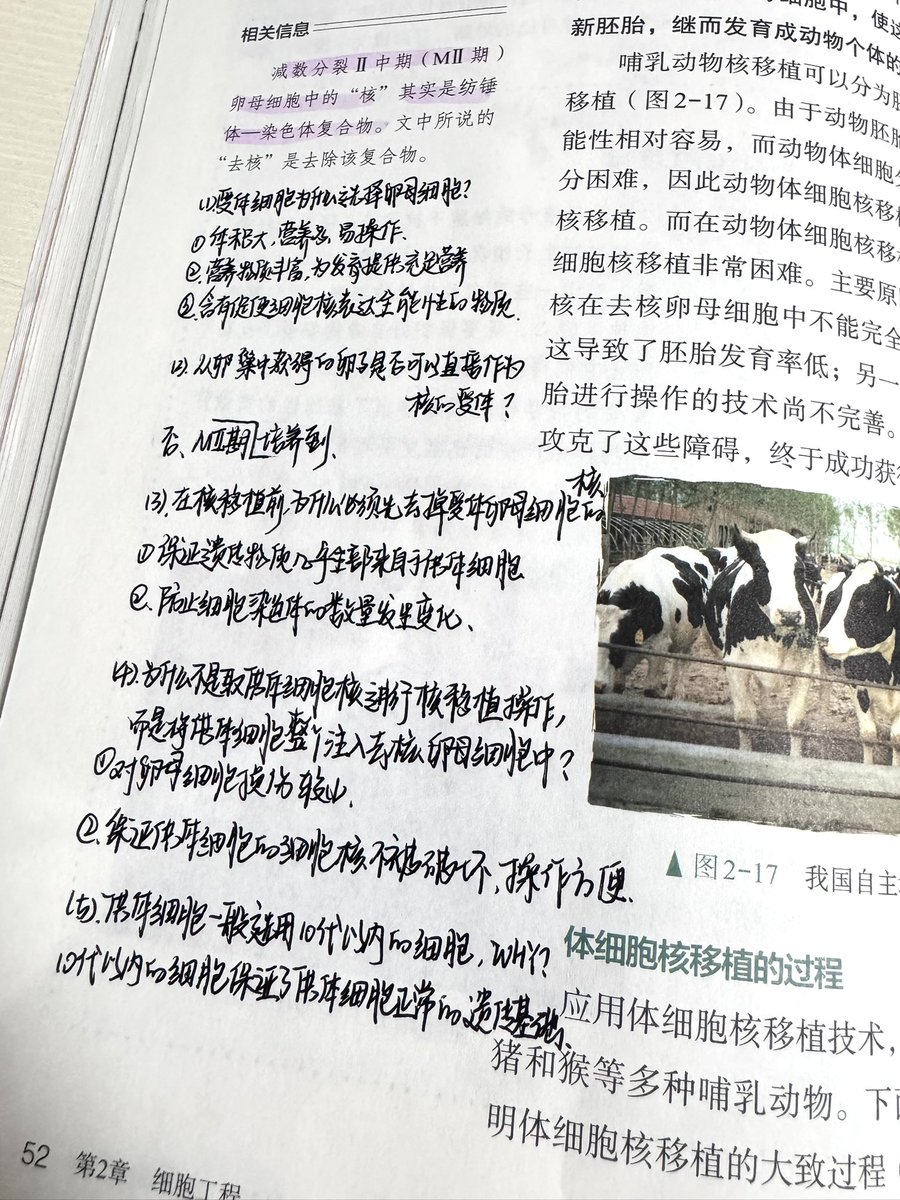 相关信息
减数分裂Ⅱ中期（MⅡ期）
卵母细胞中的“核”其实是纺锤
体—染色体复合物。文中所说的
“去核”是去除该复合物。
(1)受体细胞为什么选择卵母细胞?
①体积大，营养多，易操作.
②.营养物质丰富,为发育提供充足营养
③.含有促使细胞核表达全能性的物质.
(2).从卵巢中获得的卵子是否可以直接作为
核的受体？
否、MⅡ期 培养到.
(3).在核移植前,为什么必须先去掉受体卵母细胞的核
①保证遗传物质几乎全部来自于供体细胞
②.防止细胞染色体的数量发生变化、
(4).为什么不是取供体细胞核进行核移植操作,
而是将供体细胞整个注入去核卵母细胞中？
①对卵母细胞损伤较小.
②.保证供体细胞的细胞核不被破坏,操作方便.
(5).供体细胞一般选用10代以内的细胞, WHY?
10代以内的细胞保证了供体细胞正常的遗传基础、
52 第2章 细胞工程
细胞中，使这
新胚胎，继而发育成动物个体的
哺乳动物核移植可以分为胚
移植（图2-17）。由于动物胚胎
能性相对容易，而动物体细胞
分困难，因此动物体细胞核移植
核移植。而在动物体细胞核移
细胞核移植非常困难。主要原
核在去核卵母细胞中不能完全
这导致了胚胎发育率低；另一
胎进行操作的技术尚不完善。
攻克了这些障碍，终于成功获
▲ 图2-17 我国自主
体细胞核移植的过程
应用体细胞核移植技术，
猪和猴等多种哺乳动物。下
明体细胞核移植的大致过程